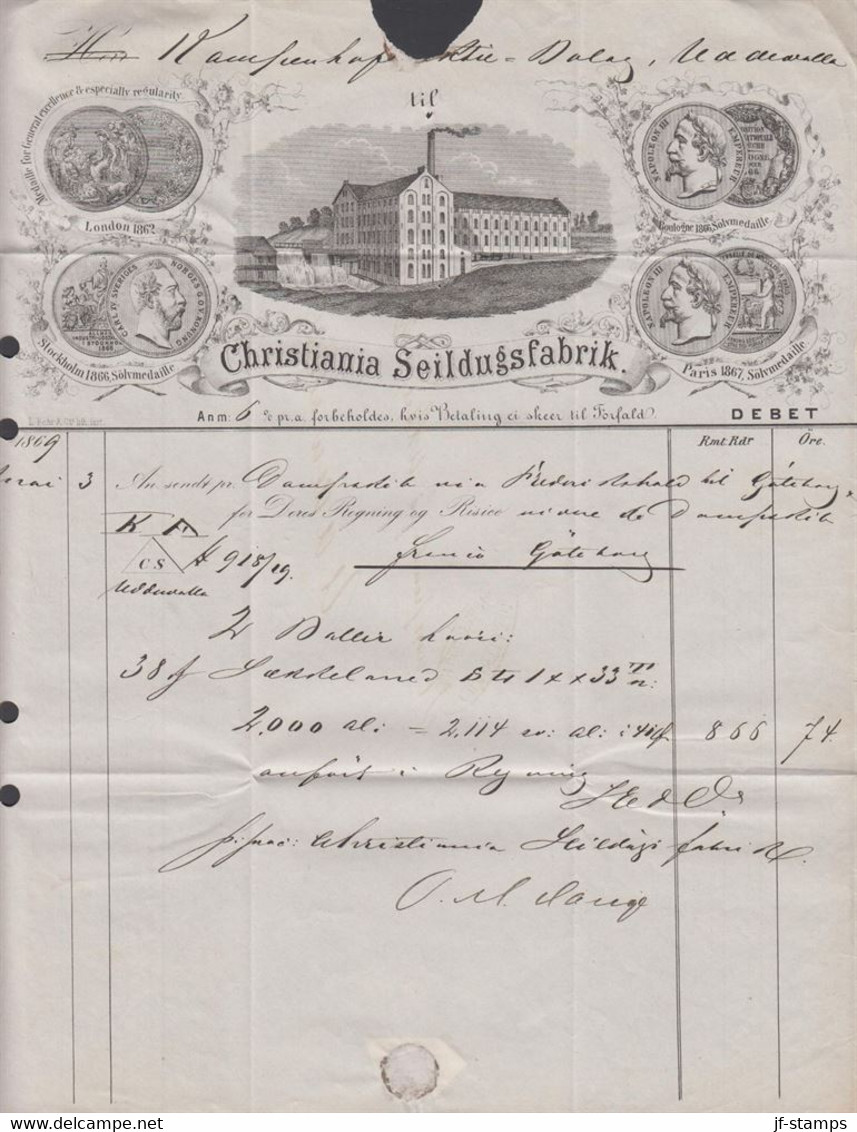 Kampenhof Aktie=Bolag, Uddevalla
til
Medaille for General excellence & especially regularity.
London 1862
NAPOLEON III EMPEREUR
Boulogne 1866, Sölvmedaille
CARL XV SVERIGES NORGES G.O.V. KONUNG
Stockholm 1866, Sölvmedaille
NAPOLEON III EMPEREUR
Paris 1867, Sölvmedaille
Christiania Seildugsfabrik.
Anm: 6 % pr.a. forbeholdes, hvis Betaling ei skeer til Forfald. DEBET
1869 Rmt. Rdr Öre.
3 An sendt pr. Dampskib via Frederikshald til Göteborg
for Deres Regning og Risico
K F
C S 918/19. franco Göteborg
Uddevalla
2 Baller hvori:
38
2,000 al: = 2,114 sv: al: 866 74
anfört i Regning
Christiania Seildugsfabrik